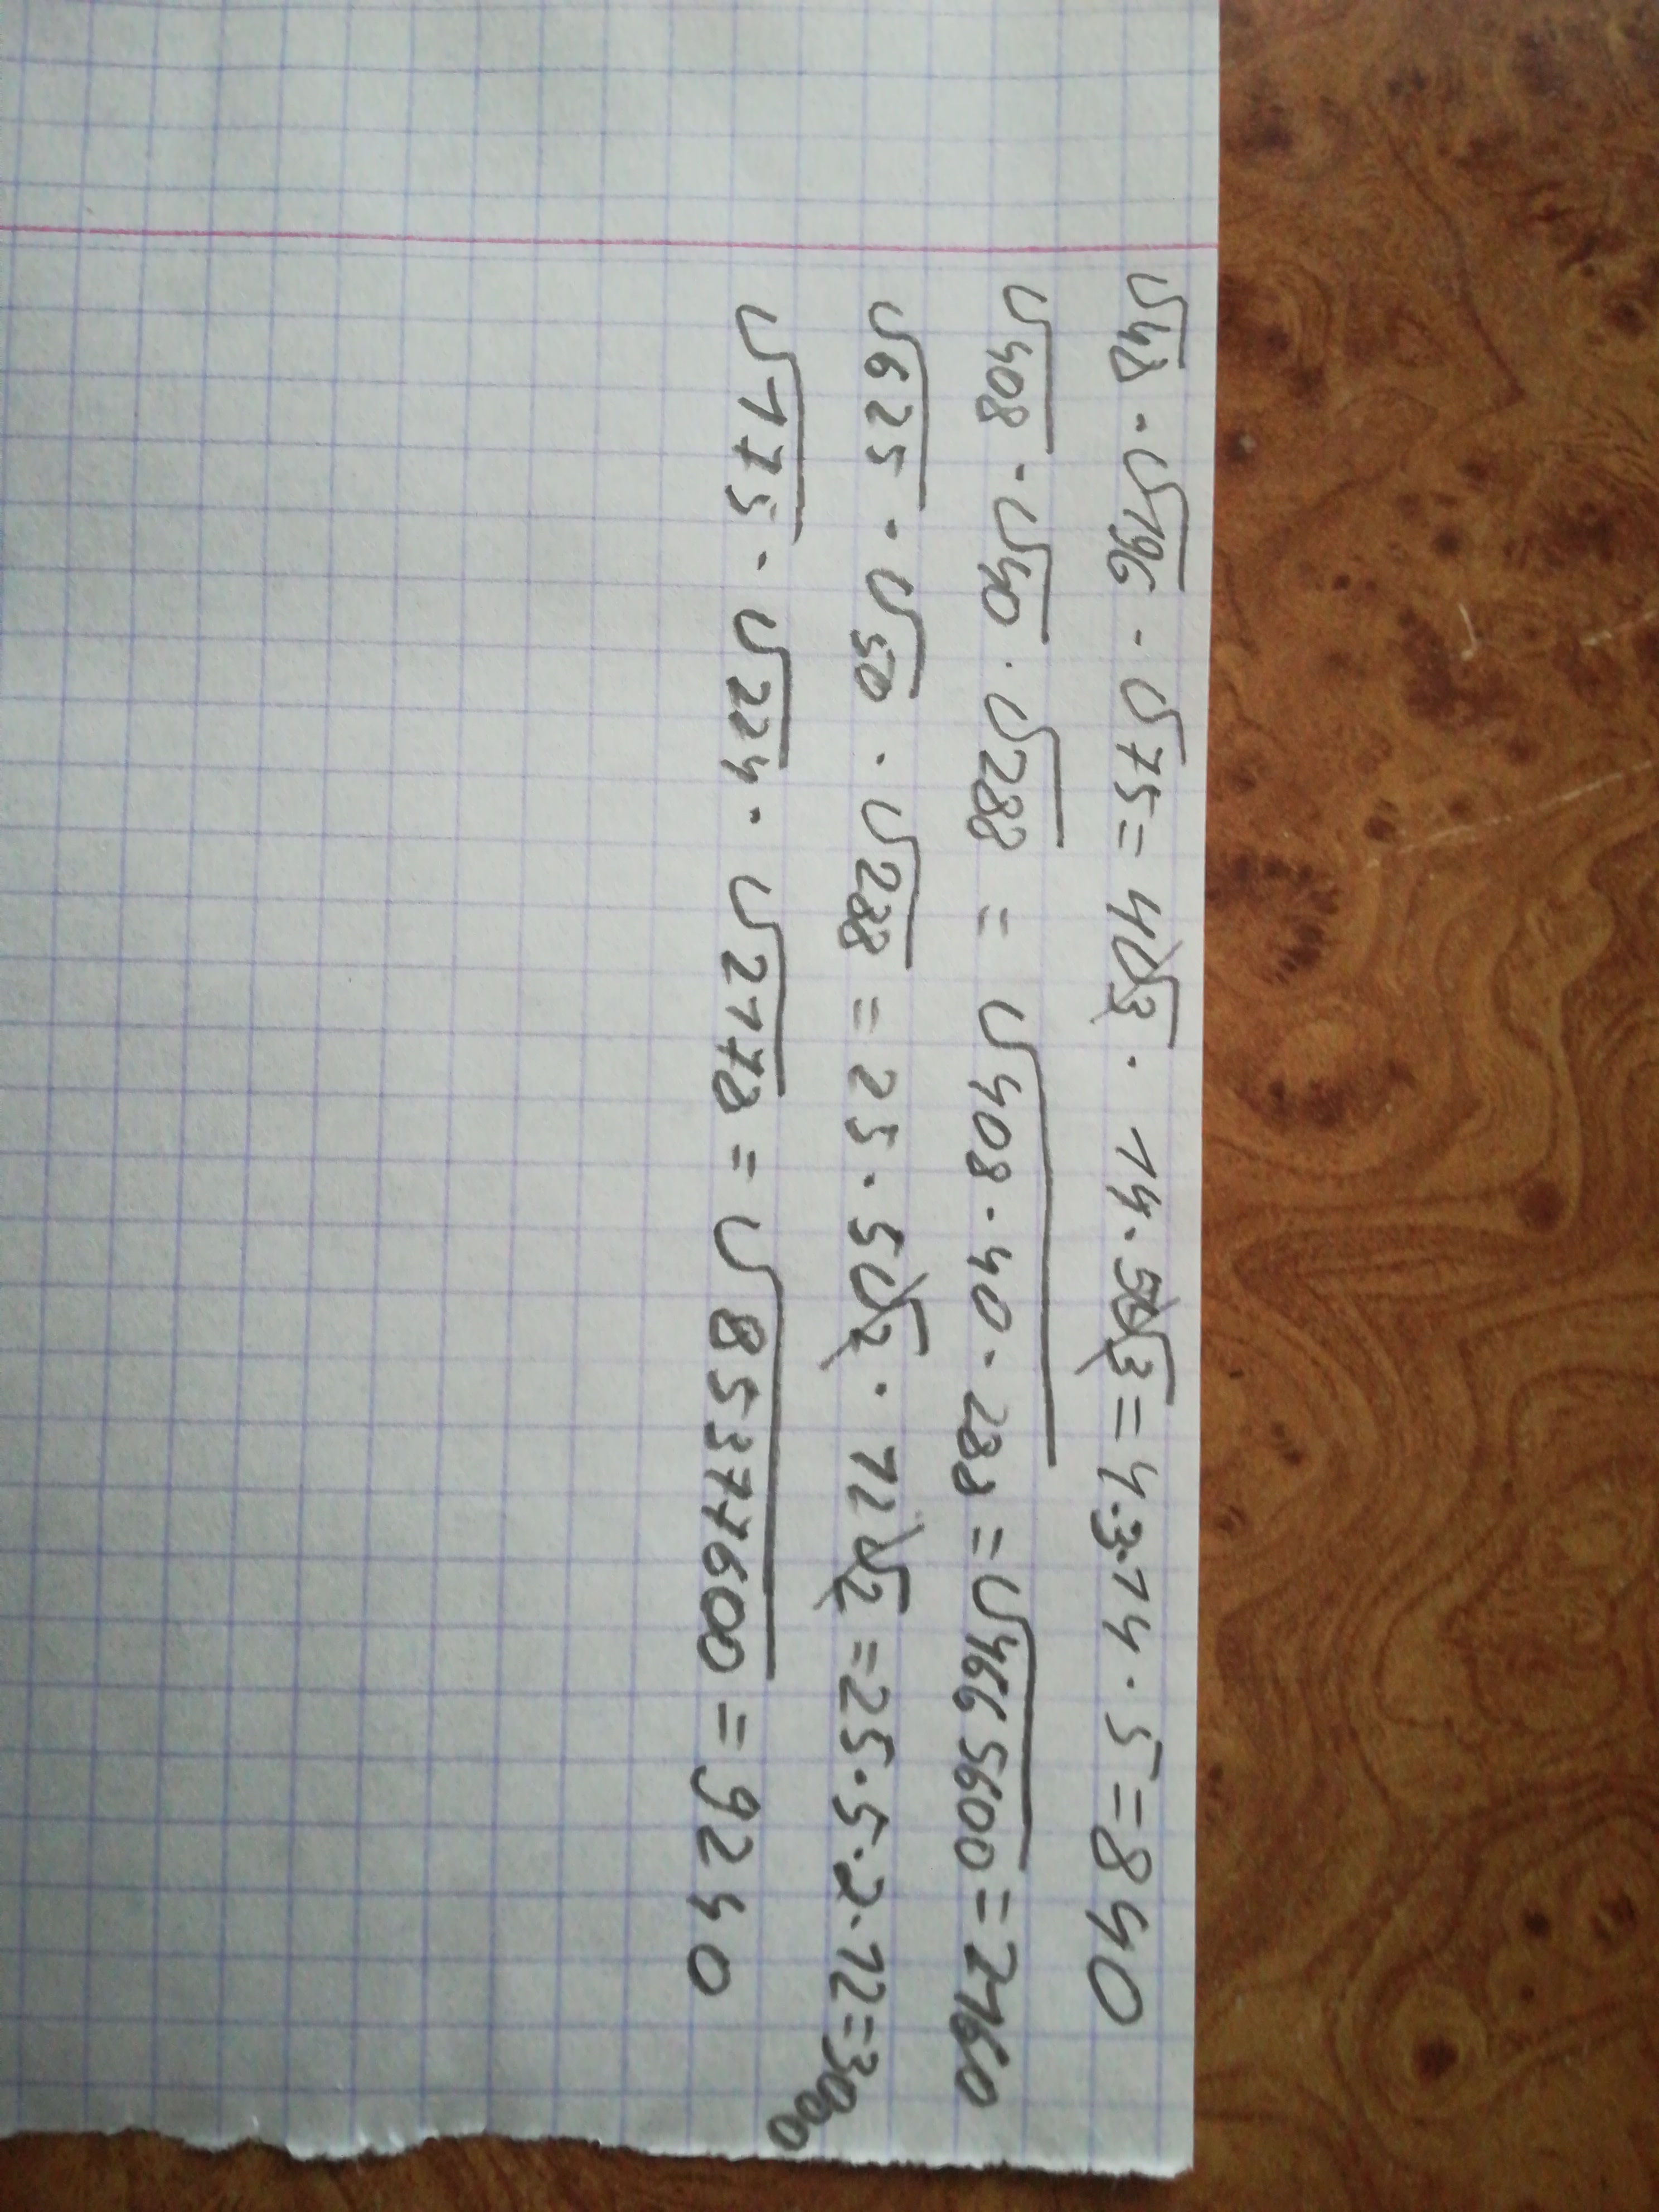 √48 · √196 · √75 = 4√3 · 14 · 5√3 = 4·3·14·5 = 840
√408 · √40 · √288 = √408·40·288 = √4665600 = 2160
√625 · √50 · √288 = 25·5√2 · 12√2 = 25·5·2·12 = 3000
√175 · √224 · √2178 = √85377600 = 9240